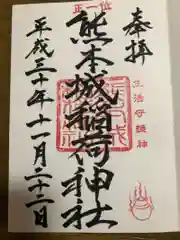 奉拝
正一位
熊本城稲荷神社
平成三十年十一月二十二日